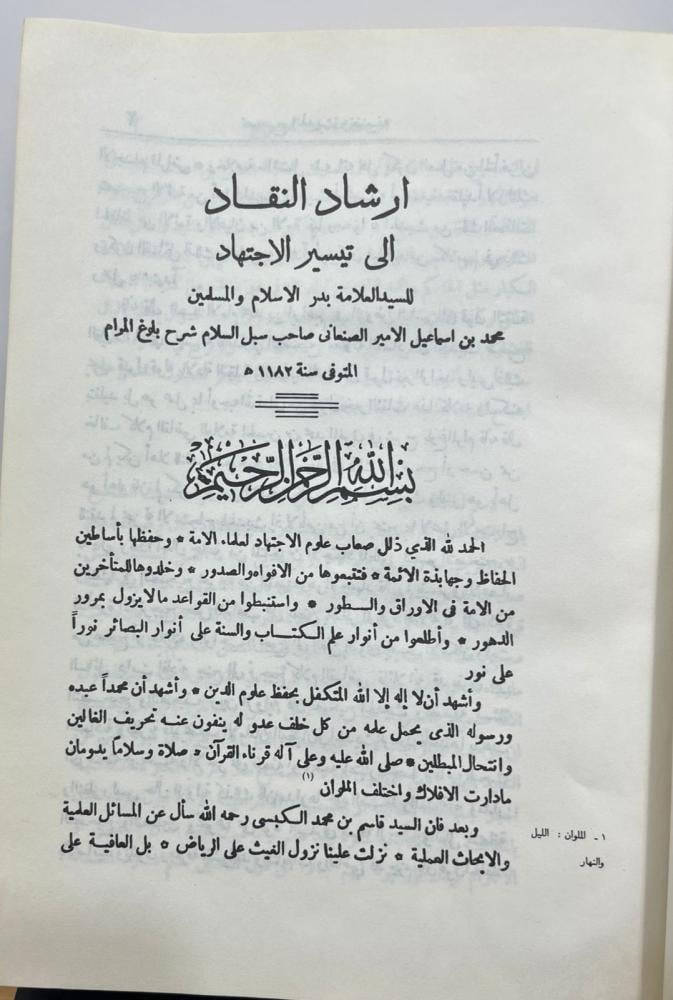 ارشاد النقاد
الى تيسير الاجتهاد
للسيد العلامة بدر الاسلام والمسلمين
محمد بن اسماعيل الامير الصنعانى صاحب سبل السلام شرح بلوغ المرام
المتوفى سنة ١١٨٢ ه
بسم الله الرحمن الرحيم
الحمد لله الذي ذلل صعاب علوم الاجتهاد لعلماء الامة * وحفظها بأساطين
الحفاظ وجهابذة الائمة * فتتبعوها من الافواه والصدور * وخلدوها للمتأخرين
من الامة فى الاوراق والسطور * واستنبطوا من القواعد ما لا يزول بمرور
الدهور * وأطلعوا من أنوار علم الكتاب والسنة على أنوار البصائر نوراً
على نور
وأشهد أن لا إله إلا الله المتكفل بحفظ علوم الدين * وأشهد أن محمداً عبده
ورسوله الذى يحمل علمه من كل خلف عدو له ينفون عنه تحريف الغالين
وانتحال المبطلين * صلى الله عليه وعلى آله قرناء القرآن * صلاة وسلاماً يدومان
مادارت الافلاك واختلف الملوان (١)
وبعد فان السيد قاسم بن محمد الكبسى رحمه الله سأل عن المسائل العلمية
والابحاث العملية * نزلت علينا نزول الغيث على الرياض * بل العافية على
١ - الملوان : الليل
والنهار